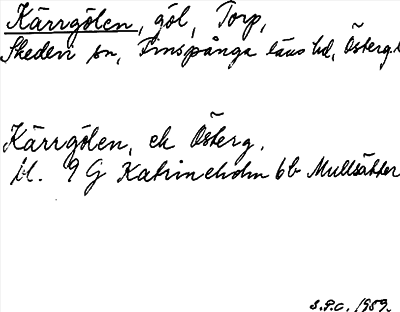 Kärrgölen, göl, Torp,
Skedevi sn, Finspånga läns hd, Österg.
Kärrgölen, ek Österg.
bl. 9 G Katrineholm 6b Mullsätter
S.P.C. 1989.